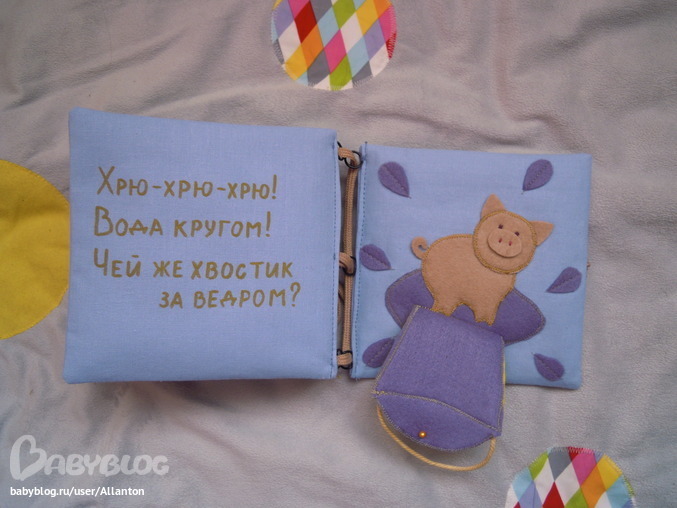 Хрю-хрю-хрю!
Вода кругом!
Чей же хвостик
за ведром?
BABYBLOG
babyblog.ru/user/Allanton